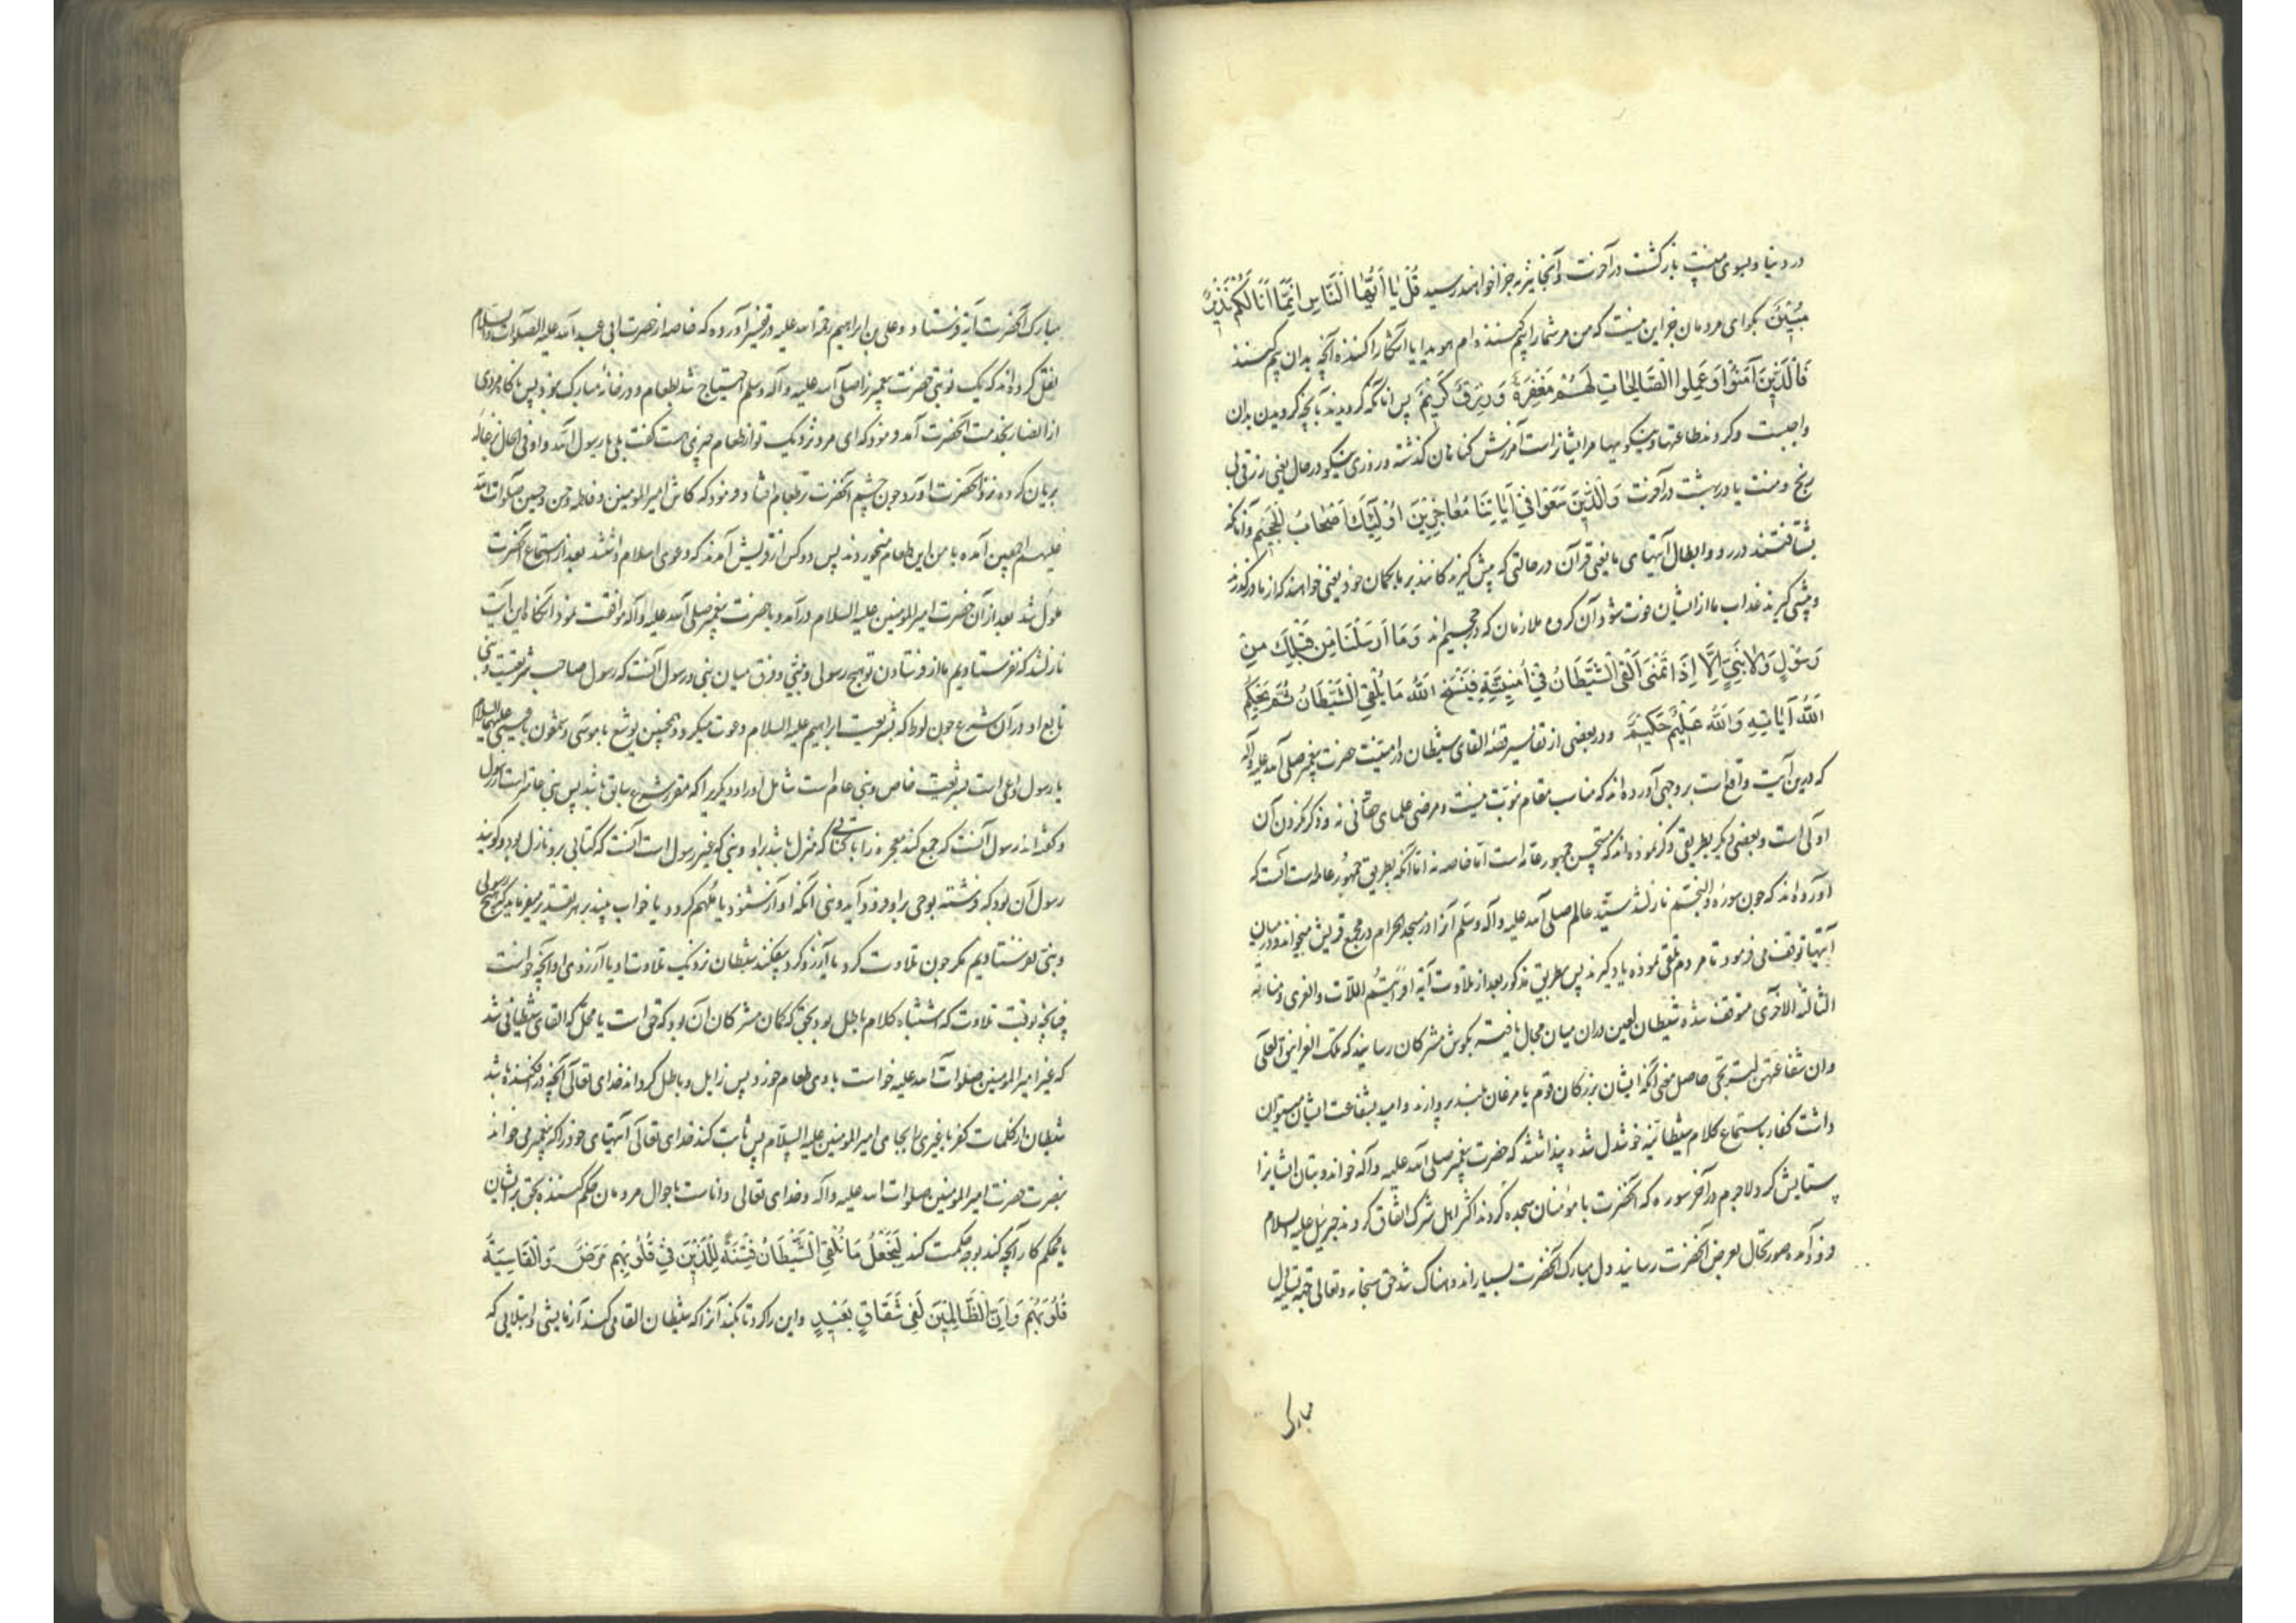 در دنیا و بسوی منست بازگشت در آخرت و آنجا نیز بجزا خواهند رسید قُلْ یٰا اَیُّهَا النّٰاسُ اِنَّمٰا اَنَا لَکُمْ نَذِیرٌ
مُبِینٌ بگو ای مردمان جز این نیست که من مر شما را بیم کننده ام هویدا یا آشکارا کننده آنچه بدان بیم کنند
فَالَّذِینَ آمَنُوا وَ عَمِلُوا الصّٰالِحٰاتِ لَهُمْ مَغْفِرَةٌ وَ رِزْقٌ کَرِیمٌ پس آنانکه گرویدند بآنچه گرویدن بدان
واجبست و کردند طاعتها و نیکوییها مر ایشانراست آمرزش گناهان گذشته و روزی نیکو در حال یعنی رزق بی
رنج و منت یا در بهشت در آخرت وَ الَّذِینَ سَعَوْا فِی آیٰاتِنٰا مُعٰاجِزِینَ اُولٰئِکَ اَصْحٰابُ الْجَحِیمِ و آنانکه
بشتافتند در رد و ابطال آیتهای ما یعنی قرآن در حالتی که پیش گیرندگانند بر ما بگمان خود یعنی خواهند که از ما درگذرند
و پیشی گیرند عذاب ما از ایشان فوت شود آن گروه ملازمان که در جحیم اند وَ مٰا اَرْسَلْنٰا مِنْ قَبْلِکَ مِنْ
رَسُولٍ وَ لٰا نَبِیٍّ اِلّٰا اِذٰا تَمَنّٰی اَلْقَی الشَّیْطٰانُ فِی اُمْنِیَّتِهِ فَیَنْسَخُ اللهُ مٰا یُلْقِی الشَّیْطٰانُ ثُمَّ یُحْکِمُ
اللهُ آیٰاتِهِ وَ اللهُ عَلِیمٌ حَکِیمٌ و در بعضی از تفاسیر قصه القای شیطان در امنیت حضرت پیغمبر صلی الله علیه و آله
که درین آیت واقع است بر وجهی آورده اند که مناسب مقام نبوت نیست و مرضی علمای حقانی نه و ذکر نکردن آن
اولی است و بعضی دیگر بطریقی ذکر نموده اند که مستحسن جمهور عامه است اما خاصه نه اما آنکه بطریق جمهور عامه است آنست که
آورده اند که چون سوره والنجم نازل شد سید عالم صلی الله علیه و آله وسلم آنرا در مسجد الحرام در مجمع قریش میخواند و در میان
آیتها توقف می فرمود تا مردم تلقی نموده یاد گیرند پس بطریق مذکور بعد از تلاوت آیة افرایتم اللات و العزی و مناة
الثالثة الاخری متوقف شده شیطان لعین در آن میان مجال یافته بگوش مشرکان رسانید که تلک الغرانیق العلی
و ان شفاعتهن لترتجی حاصل معنی آنکه ایشان بزرگان قوم یا مرغان بلند پروازند و امید بشفاعت ایشان میتوان
داشت کفار باستماع کلام شیطانیه خوشدل شده پنداشتند که حضرت پیغمبر صلی الله علیه و آله خواند و بتان ایشانرا
ستایش کرد لاجرم در آخر سوره که آنحضرت با مؤمنان سجده کردند اکثر اهل شرک اتفاق کردند جبرئیل علیه السلام
فرود آمده صورتحال بعرض آنحضرت رسانید و دل مبارک آنحضرت بسیار اندوهناک شد حق سبحانه و تعالی جهة تسلیه دل
مبارک
مبارک آنحضرت آیة فرستاد و علی بن ابراهیم رحمة الله علیه در تفسیر آورده که خاصه از حضرت ابی عبد الله علیه الصلوات والسلام
نقل کرده اند که یک نوبتی حضرت پیغمبر را صلی الله علیه و آله وسلم احتیاج شد بطعام و در خانه مبارک نبود پس ناگاه مردی
از انصار بخدمت آنحضرت آمد و فرمود که ای مرد نزدیک تو از طعام چیزی هست گفت بلی یا رسول الله و او فی الحال بزغاله
بریان کرده نزد آنحضرت آورد چون چشم آنحضرت بر طعام افتاد فرمود که کاش امیر المومنین و فاطمه و حسن و حسین صلوات الله
علیهم اجمعین آمده با من این طعام میخوردند پس دو کس از قریش آمدند که دعوی اسلام داشتند بعد از استماع آنحضرت
ملول شد بعد از آن حضرت امیر المومنین علیه السلام درآمد و با حضرت پیغمبر صلی الله علیه و آله موافقت نمود آنگاه این آیت
نازل شد که نفرستادیم ما از فرستادن تو هیچ رسولی و نبئی و فرق میان نبی و رسول آنست که رسول صاحب شریعتست و نبی
تابع او در آن شرع چون لوط که بشریعت ابراهیم علیه السلام دعوت میکرد و همچنین یوشع با موسی و شمعون با عیسی علیهما السلام
یا رسول داعی است بشریعت خاص و نبی عام است شامل او را و دیگریرا که مقرر شرع سابق باشد پس نبی عامتر است از رسول
و گفته اند رسول آنست که جمع کند معجزه را با کتابی که منزل باشد بر او و نبی که غیر رسول است آنست که کتابی برو نازل نبود و گویند
رسول آن بود که فرشته بوحی بر او فرود آید و نبی آنکه او آواز شنود یا ملهم گردد یا خواب بیند بهر تقدیر میفرماید که هیچ رسولی
و نبی نفرستادیم مگر چون تلاوت کرد یا آرزو کرد بیفکند شیطان نزدیک تلاوت او یا آرزومی او آنچه خواست
چنانچه بوقت تلاوت که اشتباه کلام باطل بود بحق که گمان مشرکان آن بود که حق است یا محل که القای شیطانی شد
که غیر امیر المومنین صلوات الله علیه خواست با وی طعام خورد پس زایل و باطل گرداند خدای تعالی آنچه درافکنده باشد
شیطان از کلمات کفر یا غیری را بجای امیر المومنین علیه السلام پس ثابت کند خدای تعالی آیتهای خود را که پیغمبر می خواند
بنصرت حضرت امیر المومنین صلوات الله علیه و آله و خدای تعالی داناست باحوال مردمان حکم کننده بحق بر ایشان
یا محکم کار آنچه کند بوجه حکمت کند لِیَجْعَلَ مٰا یُلْقِی الشَّیْطٰانُ فِتْنَةً لِلَّذِینَ فِی قُلُوبِهِمْ مَرَضٌ وَ الْقٰاسِیَةِ
قُلُوبُهُمْ وَ اِنَّ الظّٰالِمِینَ لَفِی شِقٰاقٍ بَعِیدٍ و این را کرد تا بکند آنرا که شیطان القا می کند آزمایشی و ابتلایی که